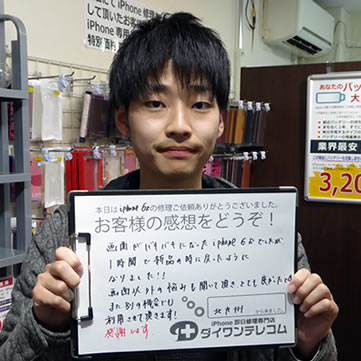 にて iPhone 修理
して頂いたお客
iPhone 専用
特別価格
あなたの
バッ
大
業界最安
3,20
本日は iPhone 6s の修理ご依頼ありがとうございました。
お客様の感想をどうぞ！
画面がバキバキになった iPhone 6s でしたが、
1時間で新品の時に戻ったように
なりました!!
画面以外の悩みも聞いて頂きとても良かったです
また別の機会でも
利用させて頂きます!
感謝します。
北九州
から来ました。
iPhone 即日修理専門店
ダイワンテレコム